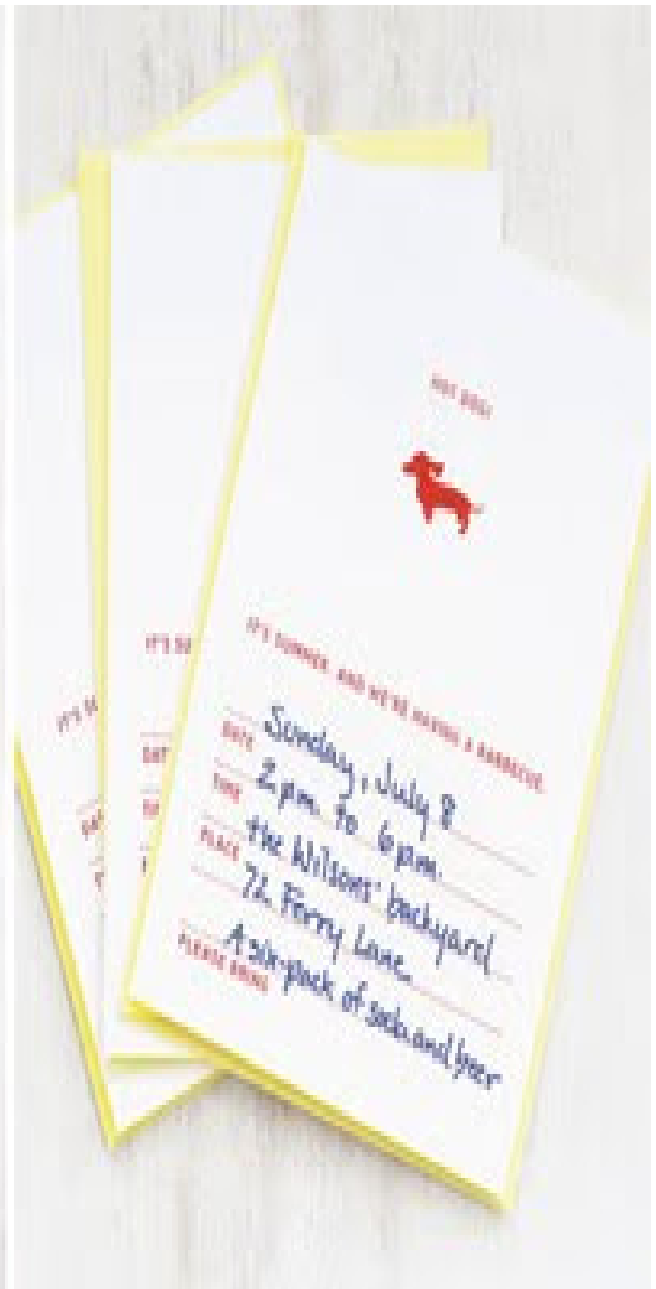 HOT DOG!
IT'S SUMMER, AND WE'RE HAVING A BARBECUE.
DATE Sunday, July 8
TIME 2 p.m. to 6 p.m.
PLACE the Wilsons' backyard
72 Ferry Lane
PLEASE BRING A six-pack of soda and beer
IT'S SU
DAT
IT'S
DA